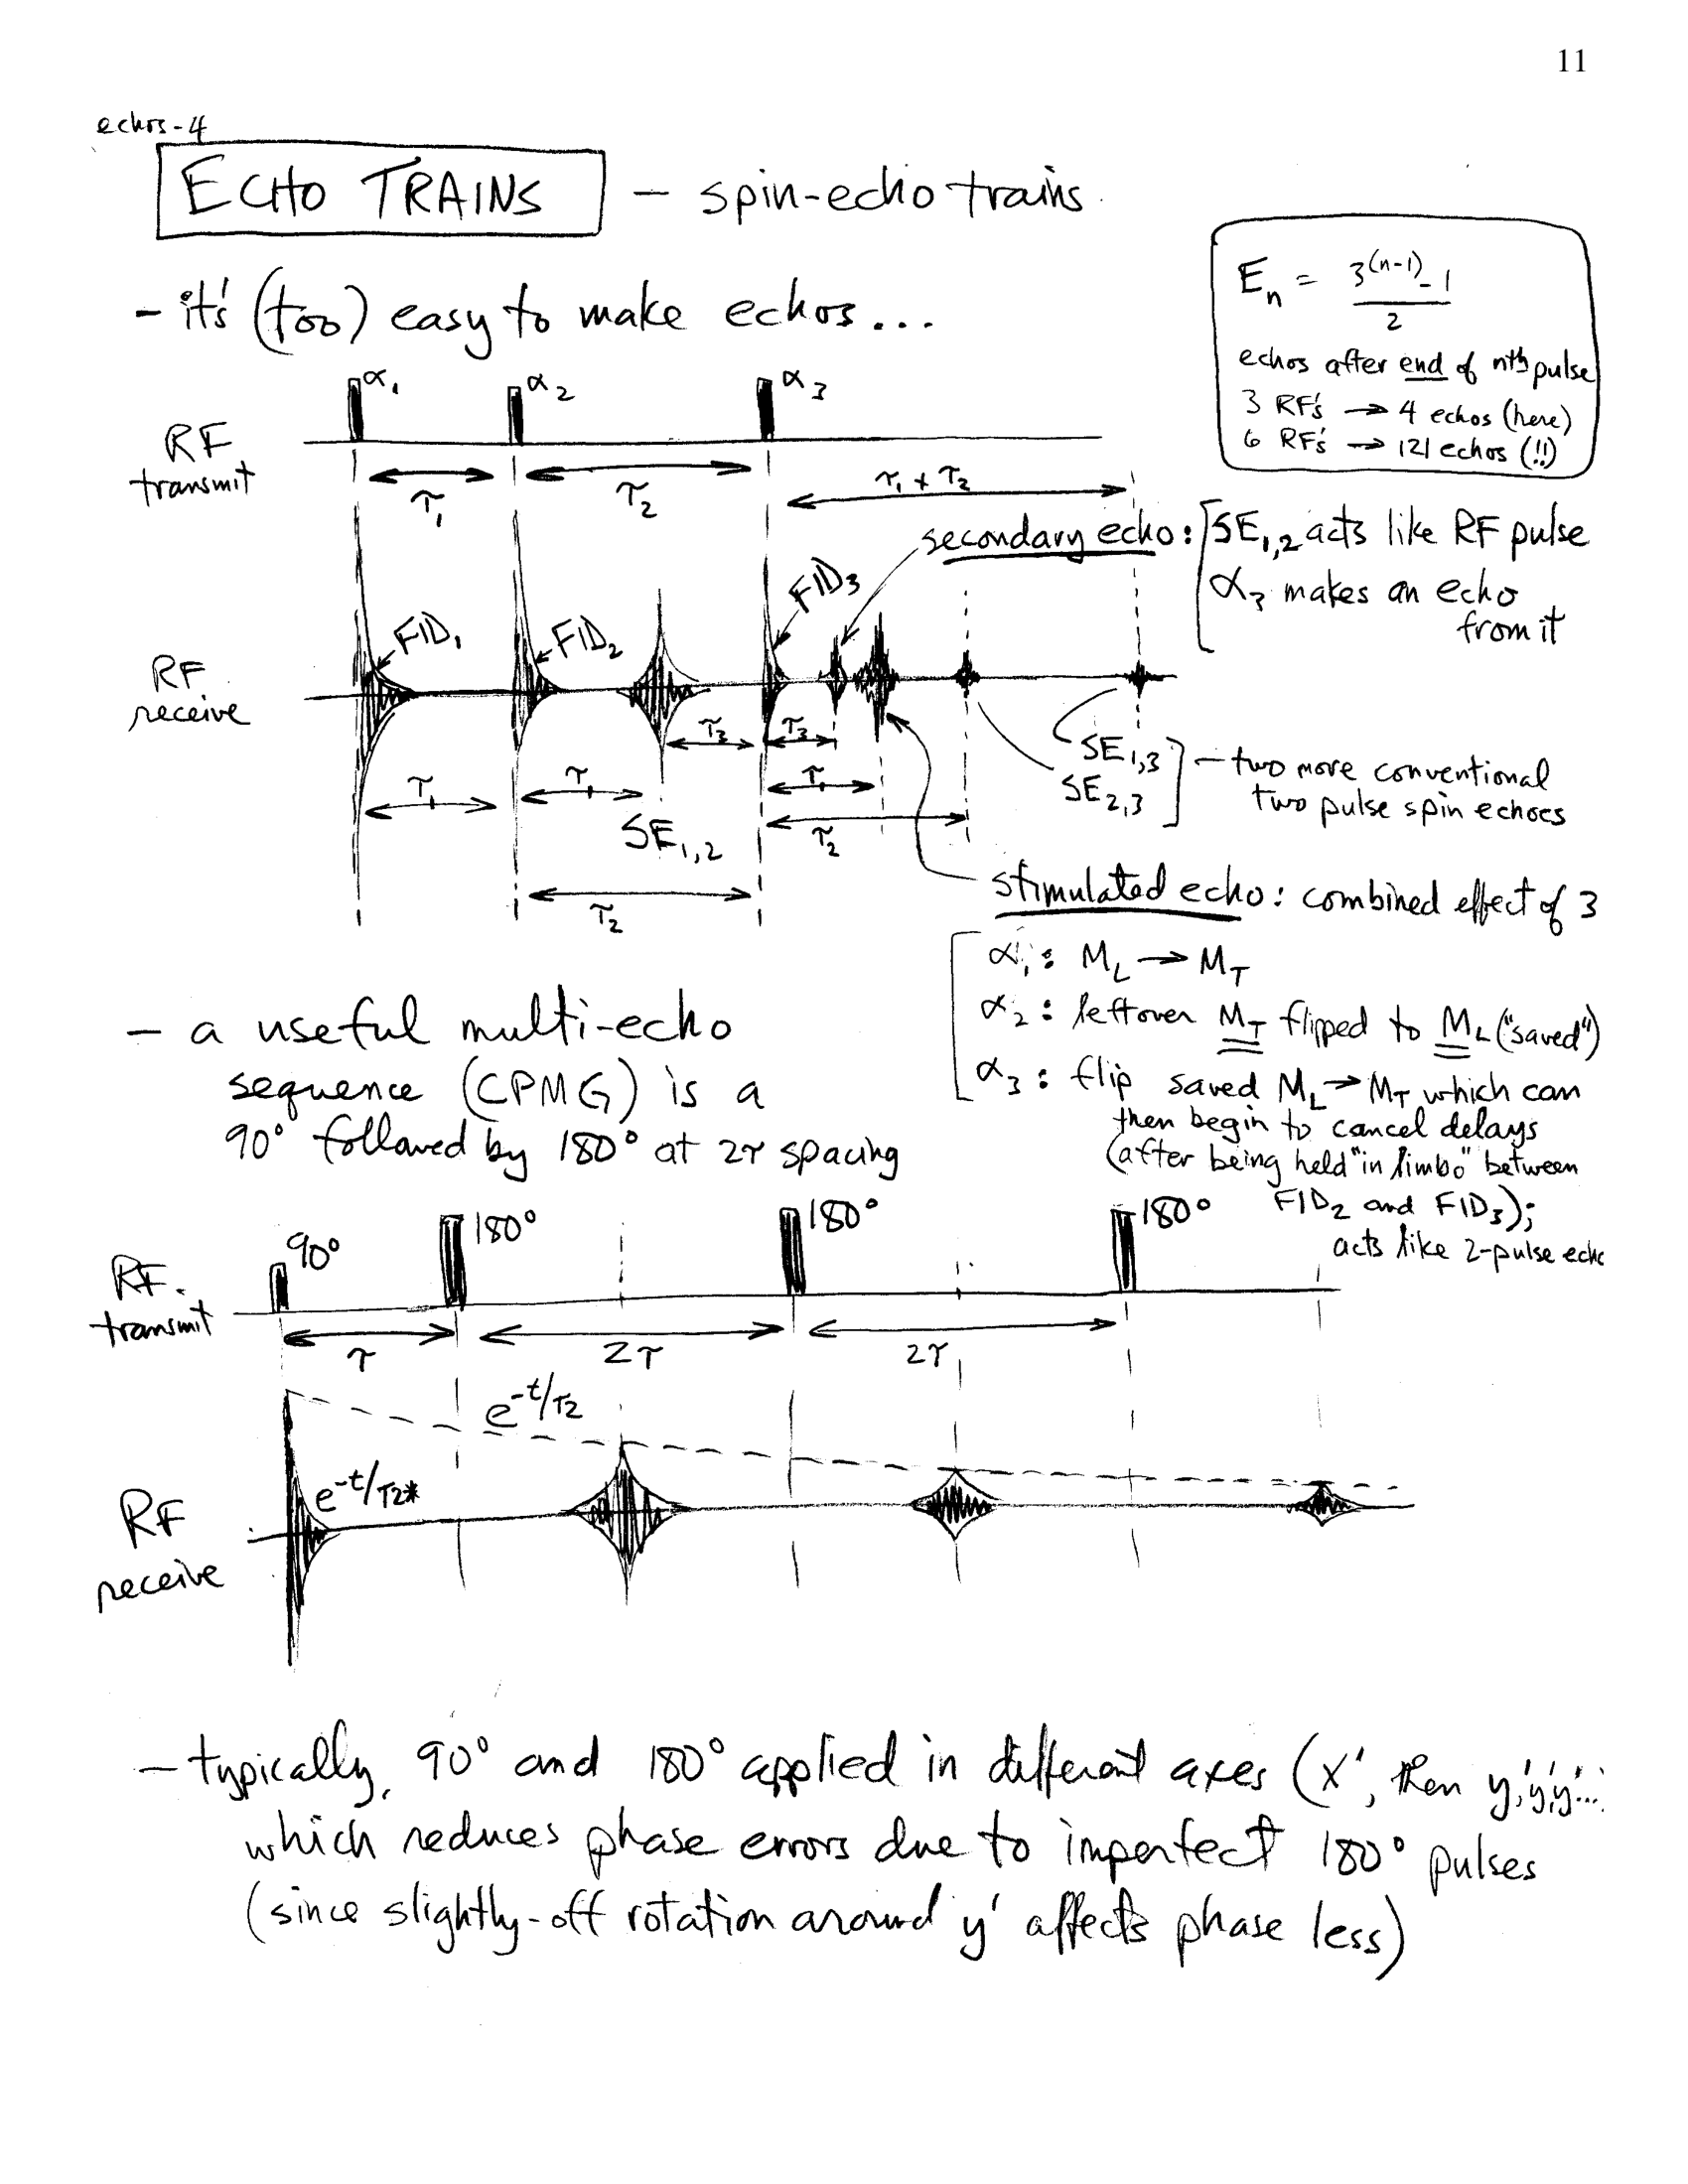 11
echos-4
ECHO TRAINS – spin-echo trains
- it's (too) easy to make echos...
E_n = (3^(n-1) - 1) / 2
echos after end of nth pulse
3 RF's → 4 echos (here)
6 RF's → 121 echos (!!)
α1 α2 α3
RF
transmit
τ1 τ2 τ1 + τ2
secondary echo: SE1,2 acts like RF pulse
α3 makes an echo
from it
FID1 FID2 FID3
RF
receive
τ3 τ3
τ1 τ1 τ1
SE1,2 τ2
τ2
SE1,3
SE2,3
– two more conventional
two pulse spin echoes
stimulated echo: combined effect of 3
α1: ML → MT
α2: leftover MT flipped to ML ("saved")
α3: flip saved ML → MT which can
then begin to cancel delays
(after being held "in limbo" between
FID2 and FID3);
acts like 2-pulse echo
– a useful multi-echo
sequence (CPMG) is a
90° followed by 180° at 2τ spacing
90° 180° 180° 180°
RF
transmit
τ 2τ 2τ
e^-t/T2
e^-t/T2*
RF
receive
– typically, 90° and 180° applied in different axes (x', then y',y',y'...
which reduces phase errors due to imperfect 180° pulses
(since slightly-off rotation around y' affects phase less)